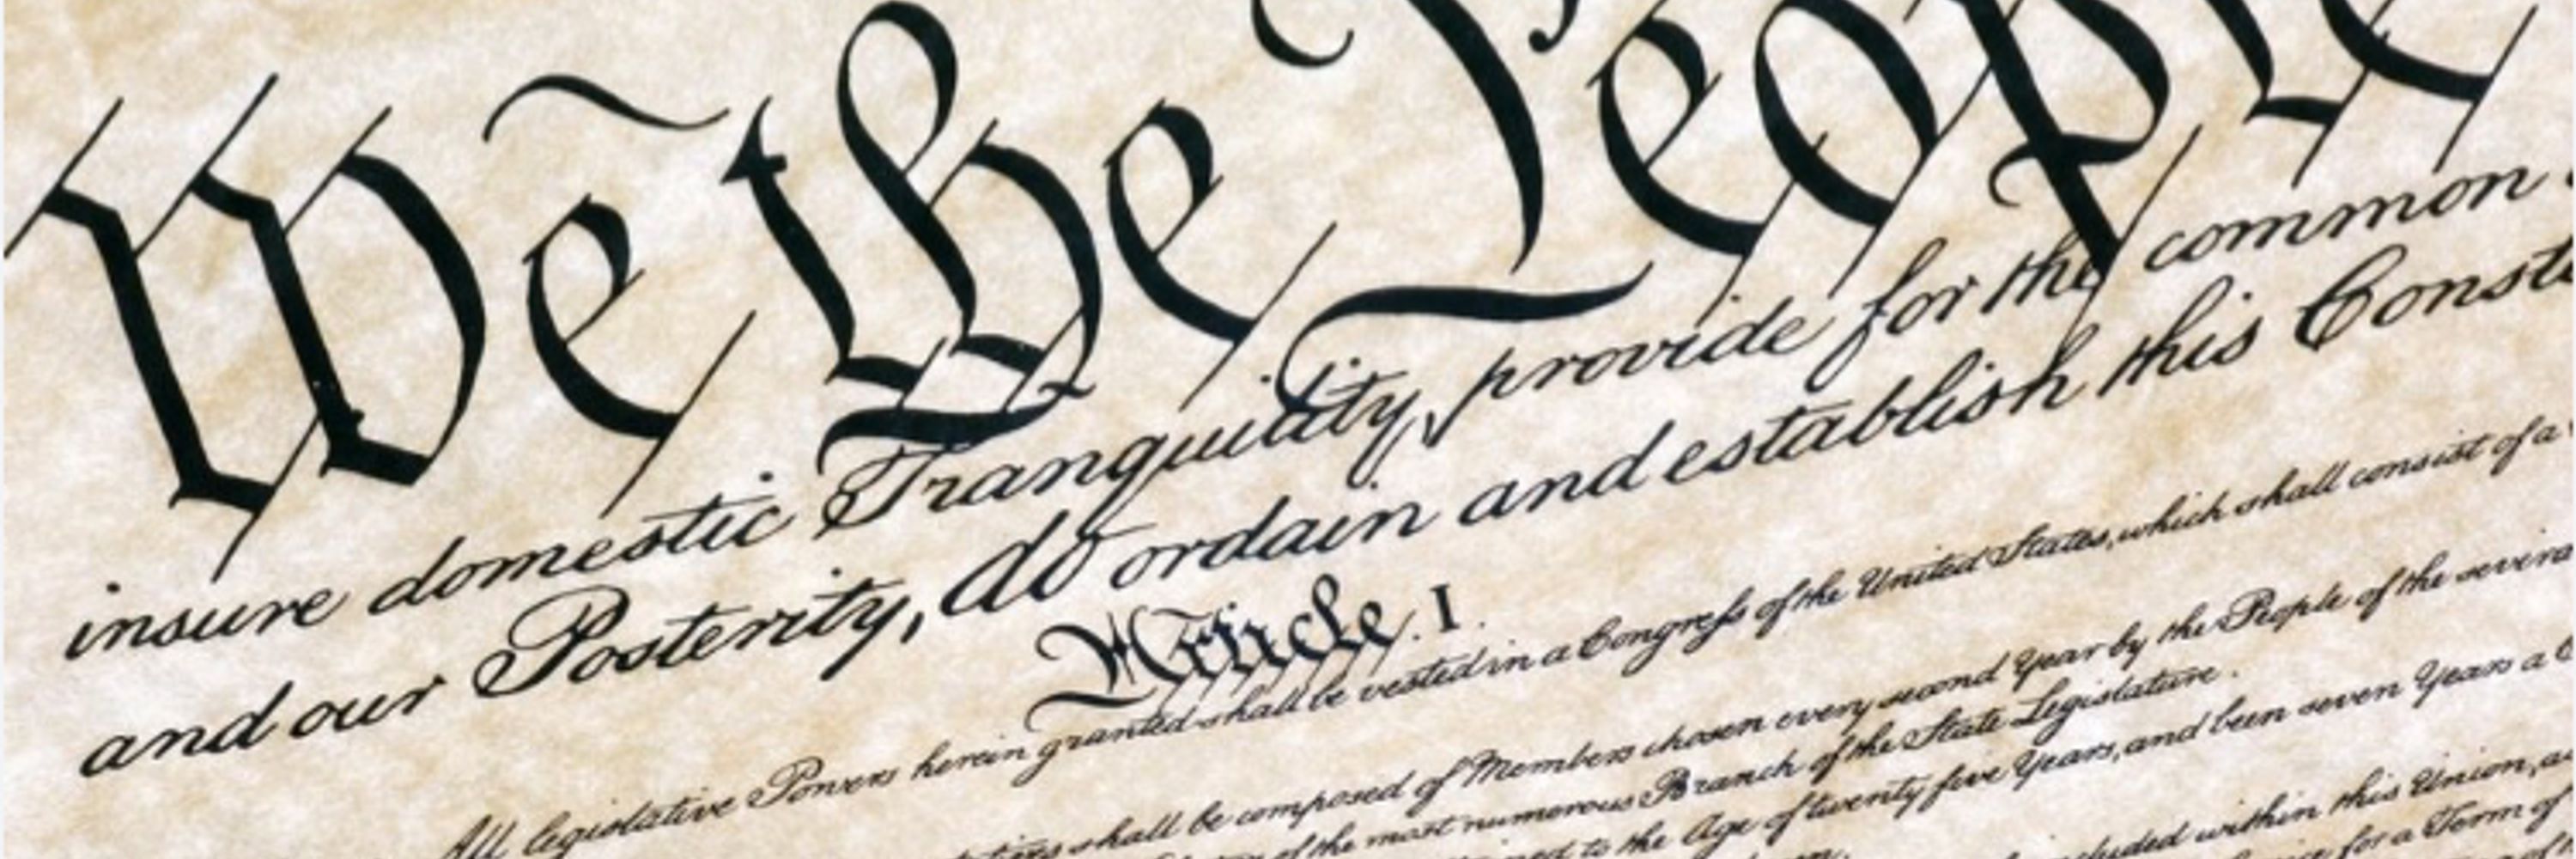 We the People
insure domestic Tranquility, provide for the common
and our Posterity, do ordain and establish this Const
Article. I.
All legislative Powers herein granted shall be vested in a Congress of the United States, which shall consist of a
shall be composed of Members chosen every second Year by the People of the severa
of the most numerous Branch of the State Legislature.
to the Age of twenty five Years, and been seven Years a C
included within this Union, a
for a Term of